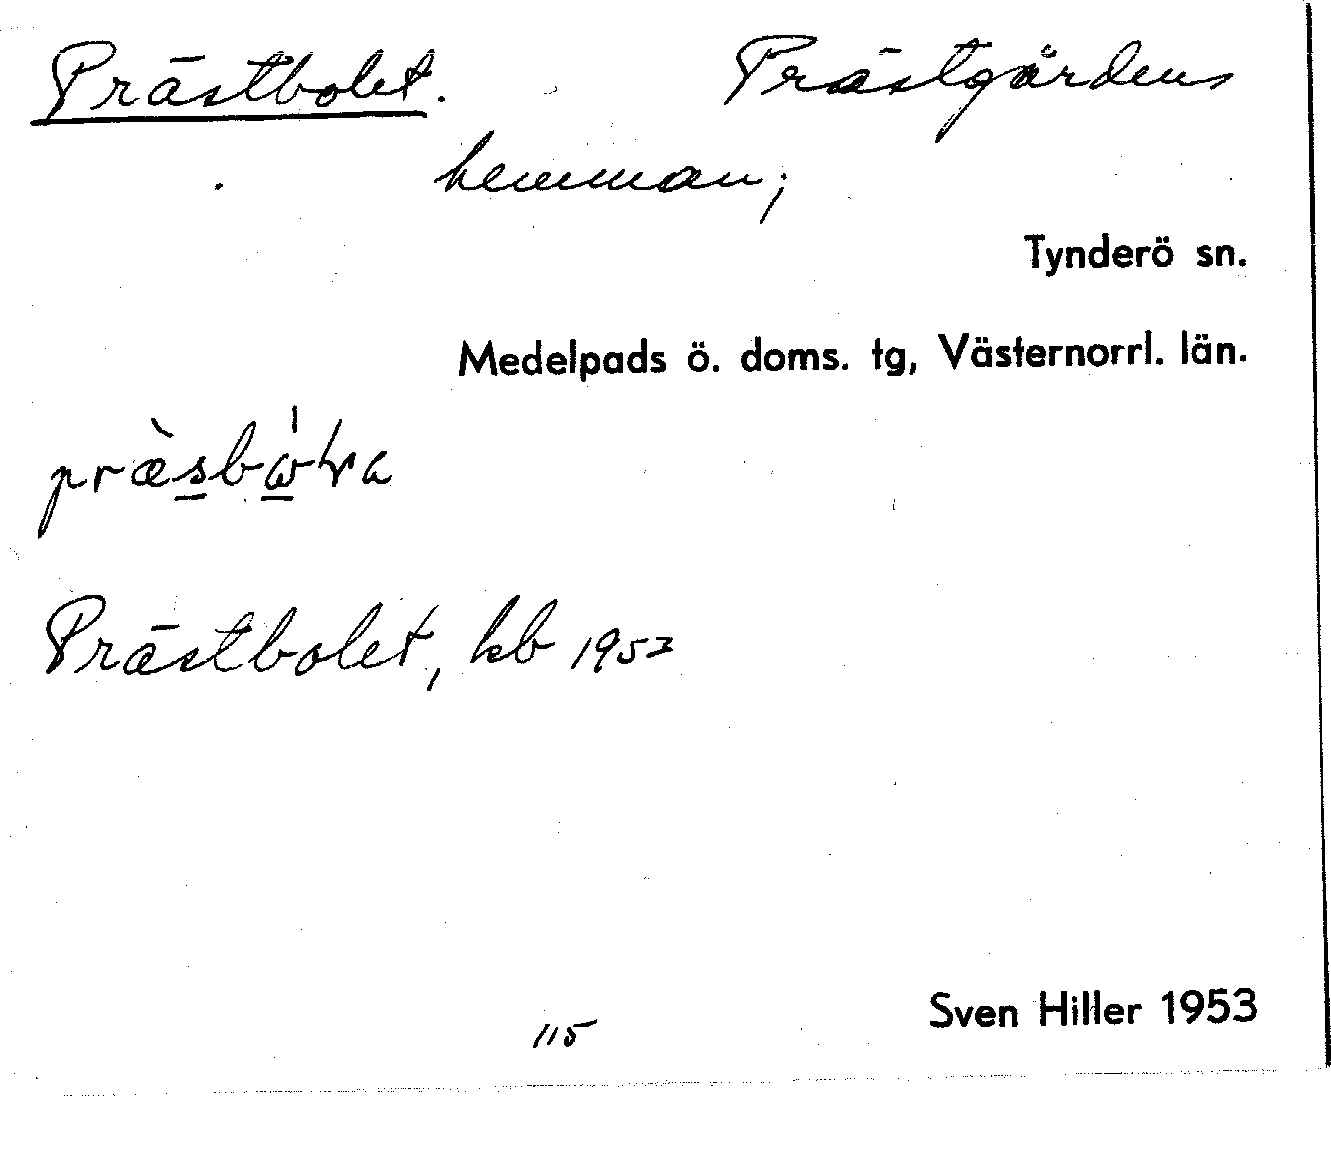 Prästbolet. Prästgårdens
hemman;
Tynderö sn.
Medelpads ö. doms. tg, Västernorrl. län.
Prästbolet, kb 1953
115 Sven Hiller 1953